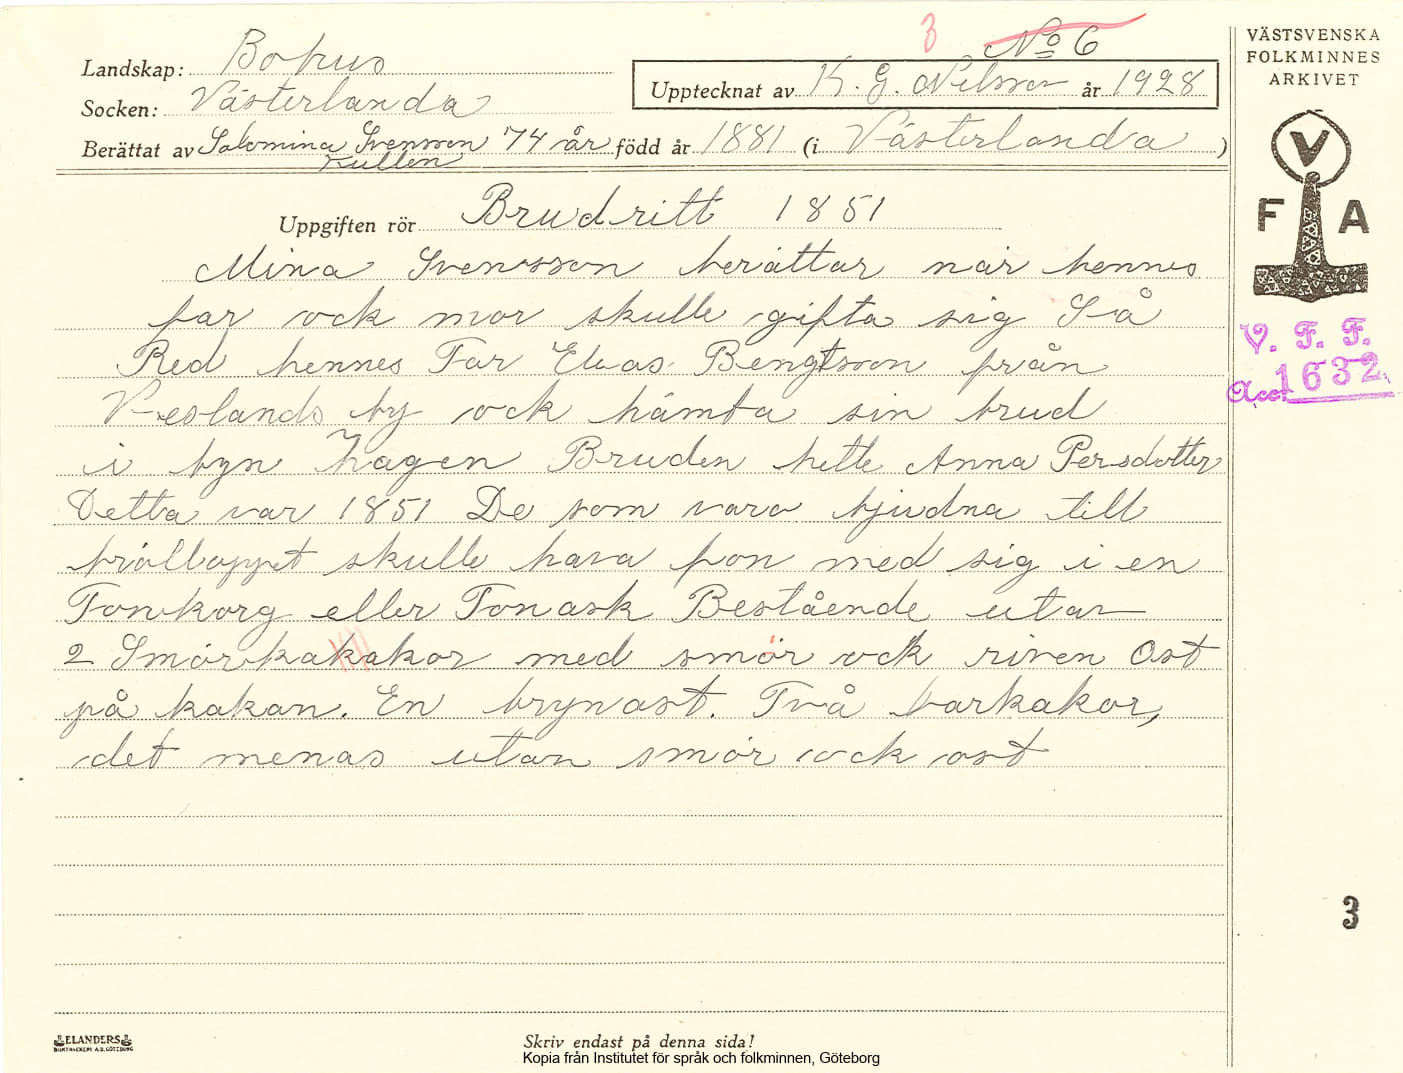 3 No 6
Landskap: Bohus
Socken: Västerlanda
Upptecknat av K. G. Nilsson år 1928
Berättat av Salomina Svensson 74 år född år 1881 (i Västerlanda)
Kullen
Uppgiften rör Brudritt 1851
Mina Svensson berättar när hennes
far ock mor skulle gifta sig Så
Red hennes Far Elias Bengtsson från
Veslands by ock hämta sin brud
i byn Hagen Bruden hette Anna Persdotter
Detta var 1851 De som vara bjudna till
brölloppet skulle hava fon med sig i en
Fonkorg eller Fonask Bestående utav
2 Smörkakakor med smör ock riven Ost
på kakan. En brynost. Två barkakor,
det menas utan smör ock ost
VÄSTSVENSKA
FOLKMINNES
ARKIVET
V
F A
V. F. F.
Acc. 1632
3
ELANDERS
BOKTRYCKERI A.B. GÖTEBORG
Skriv endast på denna sida!
Kopia från Institutet för språk och folkminnen, Göteborg